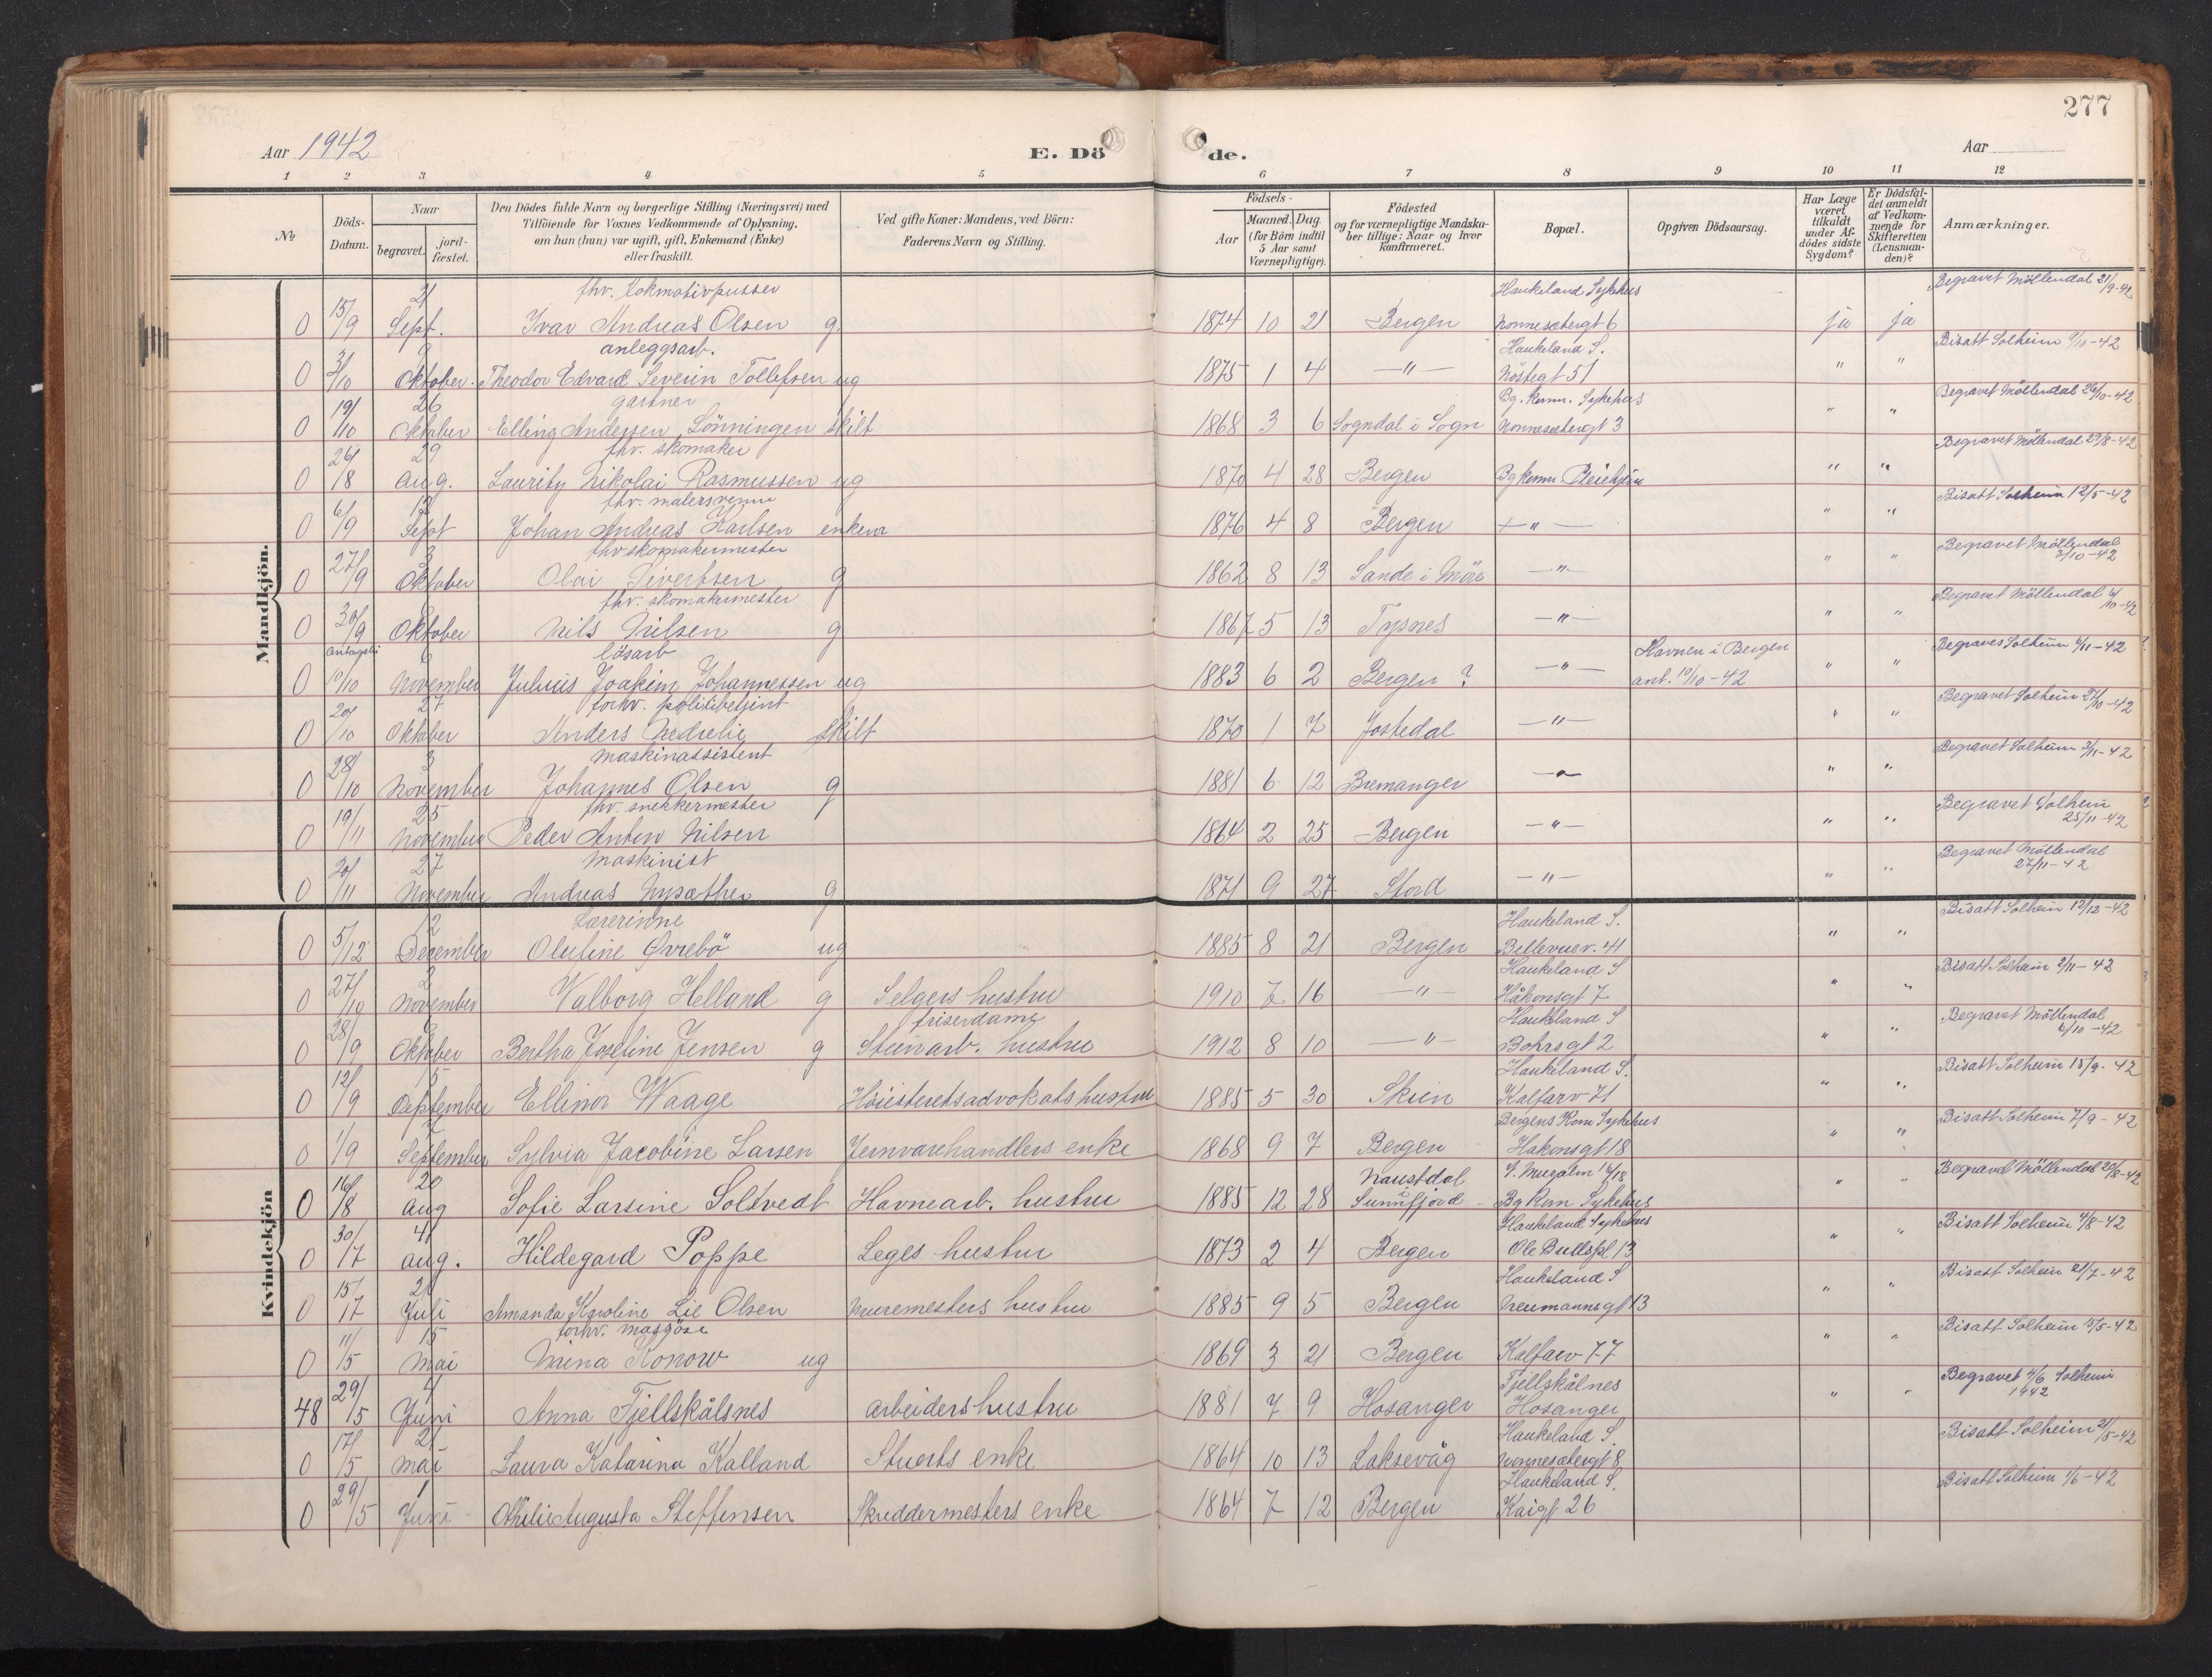 277
Aar 1942
E. Dö
de.
Aar
1 2 3 4 5 6 7 8 9 10 11 12
No
Döds-Datum.
Naar
begravet.
jord-fæstet.
Den Dödes fulde Navn og borgerlige Stilling (Næringsvei) med
Tilföiende for Voxnes Vedkommende af Oplysning,
om han (hun) var ugift, gift, Enkemand (Enke)
eller fraskilt.
Ved gifte Koner: Mandens, ved Börn:
Faderens Navn og Stilling.
Födsels-
Aar
Maaned. Dag.
(for Börn indtil
5 Aar samt
Værnepligtige).
Födested
og for værnepligtige Mandska-
ber tillige: Naar og hvor
konfirmeret.
Bopæl.
Opgiven Dödsaarsag.
Har Læge
været
tilkaldt
under Af-
dödes sidste
Sygdom?
Er Dödsfal-
det anmeldt
af Vedkom-
mende for
Skifteretten
(Lensman-
den)?
Anmærkninger.
Mandkjön.
21 fhv. lokmotivpusser Haukeland Sykehus Begravet Möllendal 21/9-42
0 15/9 Sept. Ivar Andreas Olsen g 1874 10 21 Bergen Nonnesetergt 6 ja ja
9 anleggsarb. Haukeland S. Bisatt Solheim 9/10-42
0 3/10 Oktober. Theodor Edvard Severin Tollefsen ug 1875 1 4 —"— Nöstegt 51 " "
26 gartner Bg. Komm. Sykehus Begravet Möllendal 26/10-42
0 19/10 Oktober Elling Andersen Lönningen skilt 1868 3 6 Sogndal i Sogn Nonnesetergt 3 " "
29 fhv. skomaker Begravet Möllendal 29/8-42
0 26/8 Aug. Lauritz Nikolai Rasmussen ug 1870 4 28 Bergen Bg Komm Pleiehjem " "
fhv. malersvenn Bisatt Solheim 12/5-42
0 6/9 Sept Johan Andreas Karlsen enkem 1876 4 8 Bergen —"— " "
3 fhv skomakermester Begravet Möllendal 3/10-42
0 27/9 Oktober Olai Sivertsen g 1862 8 13 Sande i Möre —"— " "
fhv. skomakermester Begravet Möllendal 6/10-42
0 30/9 Oktober Nils Nilsen g 1867 5 13 Tysnes —"— " "
antagelig 6 lösarb Havnen i Bergen Begraves Solheim 6/11-42
0 10/10 November Julius Joakim Johannessen ug 1883 6 2 Bergen ? —"— ant. 10/10-42 " "
27 forhv. politibetjent Begravet Solheim 27/10-42
0 20/10 Oktober Anders Nedrelie skilt 1870 1 7 Jostedal —"— " "
3 maskinassistent Begravet Solheim 3/11-42
0 28/10 November Johannes Olsen g 1881 6 12 Bremanger —"— " "
25 fhv. snekkermester Begravet Solheim 25/11-42
0 19/11 November Peder Anton Nilsen 1864 2 25 Bergen —"— " "
27 Maskinist Begravet Möllendal 27/11-42
0 20/11 November Andreas Nysæther g 1871 9 27 Stord —"— " "
Kvindekjön
12 Lærerinne Haukeland S. Bisatt Solheim 12/12-42
0 5/12 December Oluline Øvrebö ug 1885 8 21 Bergen Bellevuev. 41 " "
2 Haukeland S Bisatt Solheim 2/11-42
0 27/10 November Valborg Helland g Selgers hustru 1910 7 16 —"— Håkonsgt 7 " "
6 friserdame Haukeland S Begravet Möllendal 6/10-42
0 28/9 Oktober Bertha Josefine Jensen g Stenarb. hustru 1912 8 10 —"— Bohrsgt 2 " "
15 Haukeland S. Bisatt Solheim 15/9-42
0 12/9 September Ellinor Waage Höiesteretsadvokats hustru 1885 5 30 Skien Kalfarv 71 " "
Bergens Kom Sykehus Bisatt Solheim 7/9-42
0 1/9 September Sylvia Jacobine Larsen Jernvarehandlers enke 1868 9 7 Bergen Hakonsgt 18 " "
20 Naustdal Begravet Möllendal 20/8-42
0 16/8 Aug Sofie Larsine Soltvedt Havnearb. hustru 1885 12 28 Sunnfjord Bg Kom Sykehus " "
4 Haukeland Sykehus Bisatt Solheim 4/8-42
0 30/7 Aug. Hildegard Poppe Leges hustru 1873 2 4 Bergen Ole Bullspl 13 " "
21 Haukeland S Bisatt Solheim 21/7-42
0 15/7 Juli Amanda Karoline Lie Olsen Muremesters hustru 1885 9 5 Bergen Neumannsgt 13 " "
15 Bisatt Solheim 15/5-42
0 11/5 Mai Mina Konow ug 1869 3 21 Bergen Kalfarv 77 " "
4 Fjellskålnes Begravet 4/6 Solheim 1942
48 29/5 Juni Anna Fjellskålsnes Arbeiders hustru 1881 7 9 Hosanger Hosanger " "
21 Haukeland S Bisatt Solheim 21/5-42
0 17/5 Mai Laura Katarina Kalland Stuerts enke 1864 10 13 Laksevåg Nonnesetergt 8
1 Haukeland S. Bisatt Solheim 1/6-42
0 29/5 Juni Othilie Augusta Steffensen Skreddermesters enke 1864 7 12 Bergen Kaigt 26